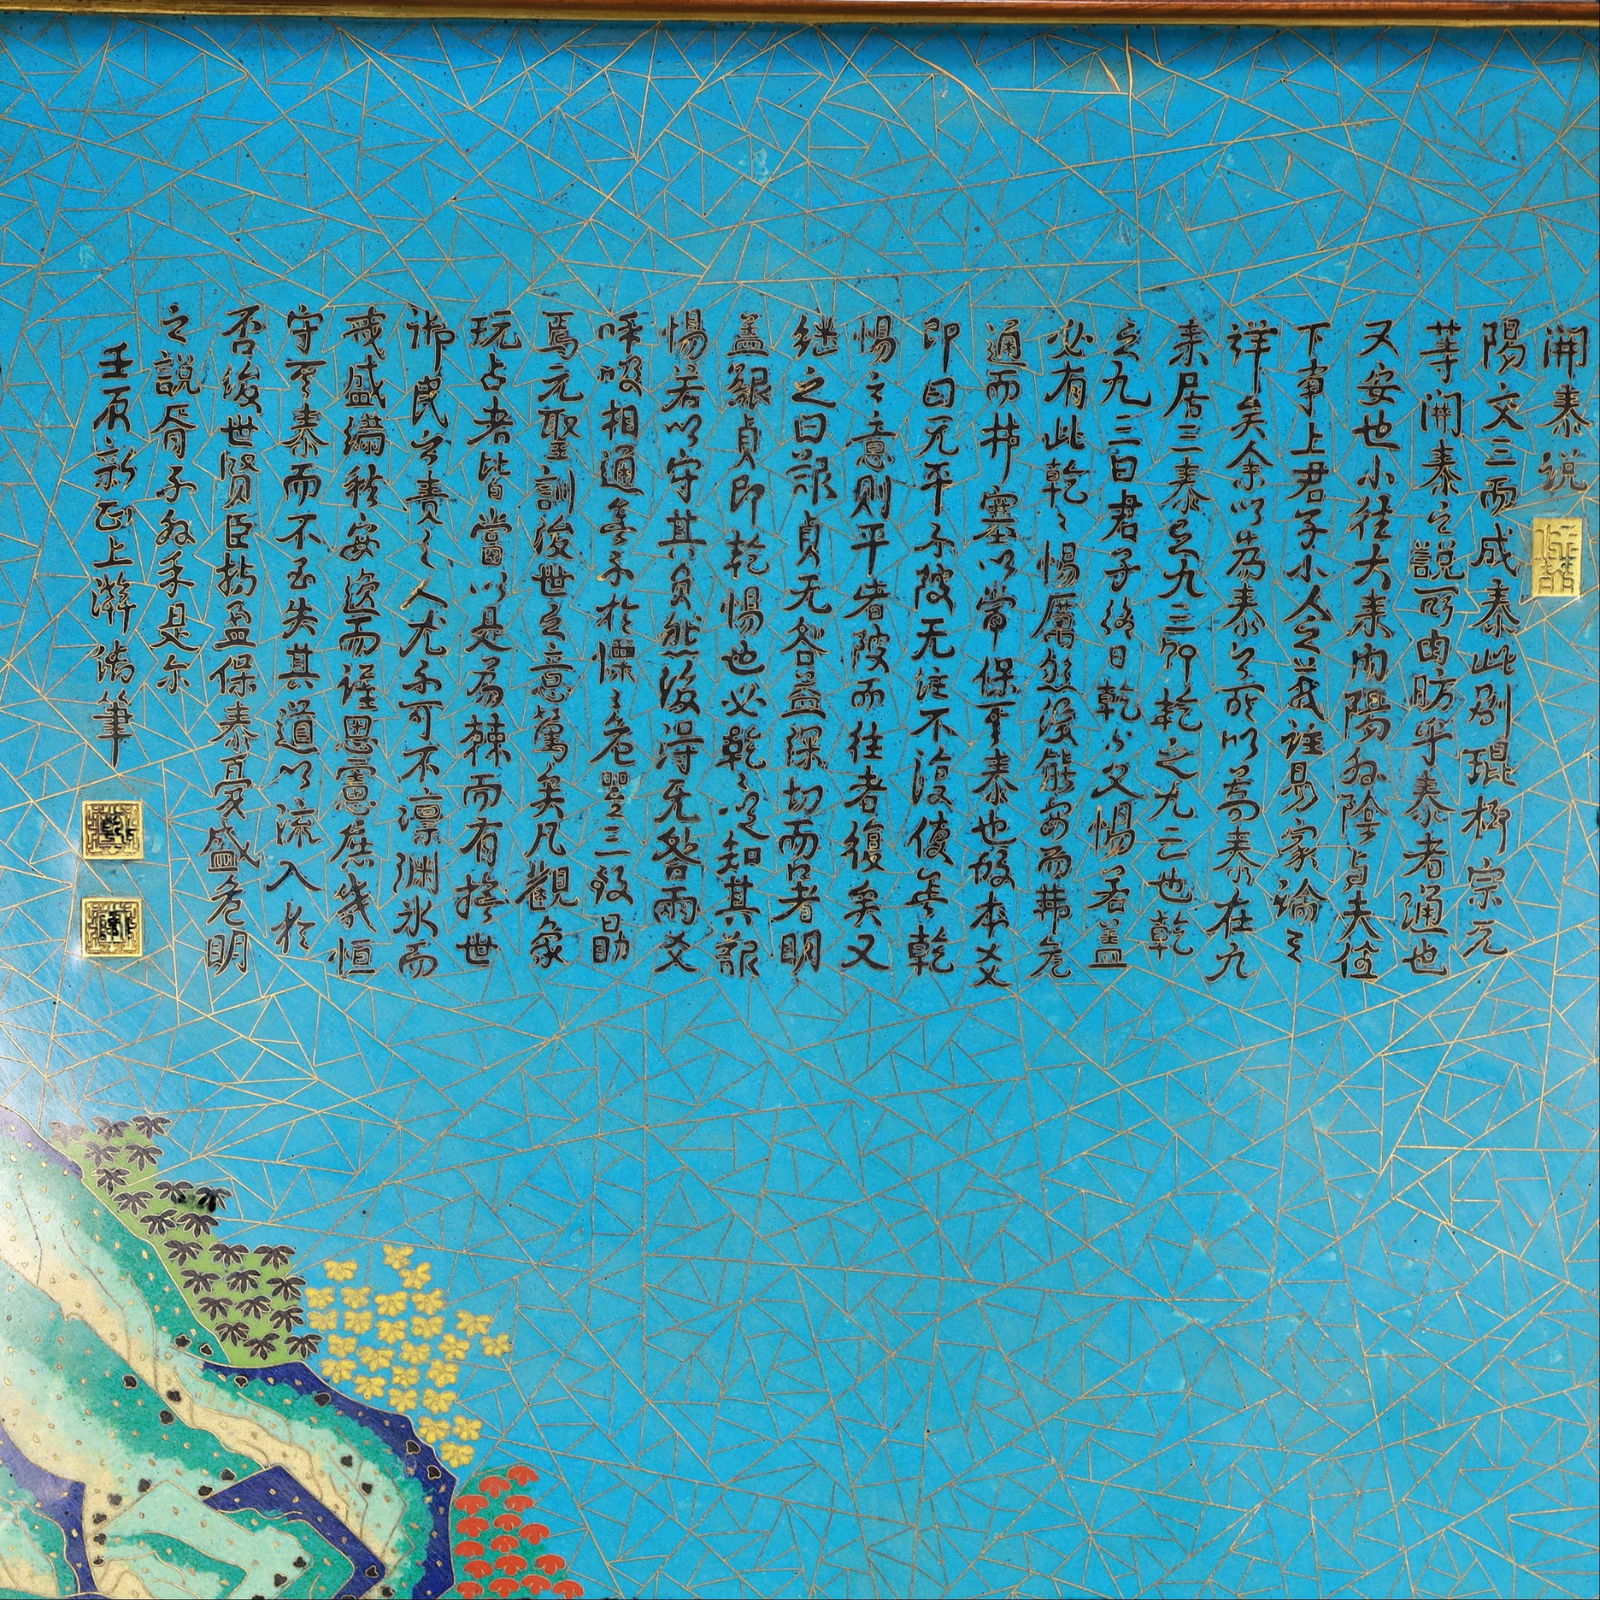 開泰說
陽交三而成泰此劉琨柳宗元
等開泰之說所由昉乎泰者通也
又安也小往大來內陽外陰貞夫位
下事上君子小人之義註易家論之
詳矣余以為泰之所以為泰在九
來居三泰之九三即乾之九三也乾
之九三曰君子終日乾乾夕惕若蓋
必有此乾乾惕厲然後能安而弗危
通而弗塞以常保其泰也故本爻
即曰无平不陂无往不復使無乾
惕之意則平者陂而往者復矣又
繼之曰艱貞无咎益深切而著明
蓋艱貞即乾惕也必乾乾以知其艱
惕若以守其貞然後得无咎兩爻
呼吸相通無不於慄慄危懼三致勗
焉元聖訓後世之意篤矣凡觀象
玩占者皆當以是為棘而有撫世
御民之責之人尤不可不凛淵冰而
戒盛滿釋安逸而謹思憲庶幾恒
守其泰而不至失其道以流入於
否後世賢臣持盈保泰憂盛危明
之說胥不外乎是尔
壬辰新正上澣御筆